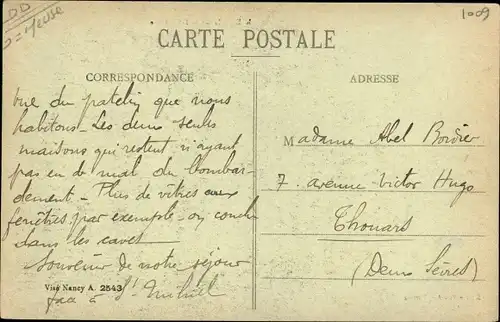 DD
Meuse
1009
CARTE POSTALE
CORRESPONDANCE
ADRESSE
Vue du patelin que nous
habitons. Les deux seuls
maisons qui restent n'ayant
pas eu de mal du bombar-
dement - Plus de vitres aux
fenêtres par exemple - on couche
dans les caves
Souvenir de notre séjour
face à St Mihiel
Visé Nancy A. 2543
Madame Abel
7. avenue Victor Hugo
Thouars
(Deux Sèvres)